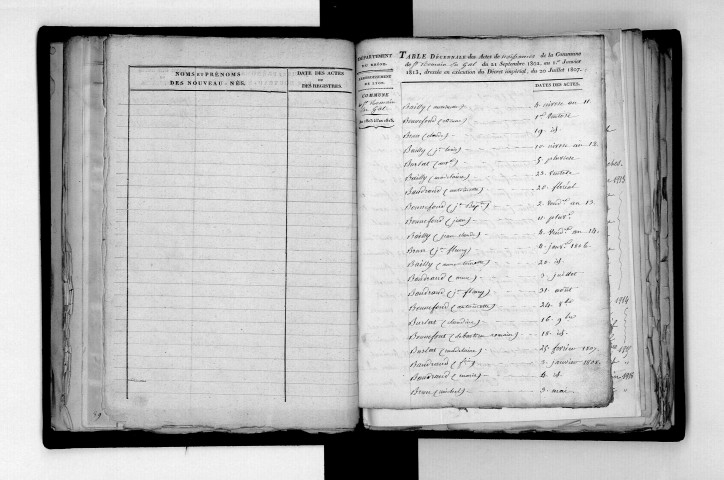 NOMS ET PRÉNOMS
DES NOUVEAU-NÉS.
DATE DES ACTES
OU
DES REGISTRES.
DÉPARTEMENT
DU RHÔNE.
ARRONDISSEMENT
DE LYON.
COMMUNE
de St Romain
TABLE DÉCENNALE des Actes de naissance de la Commune
de St Romain du 21 Septembre 1802, au 1er Janvier
1813, dressée en exécution du Décret impérial, du 20 Juillet 1807.
DATES DES ACTES.
Bailly 4 nivose an 11
Bonnefond 1er ventose
Brun (claude) 19 id
Bailly 10 nivose an 12
5 pluviose
Bailly (madelaine) 23 ventose
Baudrand (antoinette) 20 floréal
Bonnefond 2 vend.re an 13
Bonnefond (jean) 11 pluv.e
Bailly (jean claude) 4 vend.re an 14
Brun (jn fleury) 4 janv.r 1806
Bailly 20 id
Baudrand (anne) 3 juillet
Baudrand (jn fleury) 31 août
Bonnefond (antoinette) 24 8bre
(claudine) 16 9bre
Bonnefont (sebastien romain) 18 id
(madelaine) 25 février 1807
Baudrand 2 janvier 1808
Baudrand (marie) 4 id
Brun (michel) 3 mai